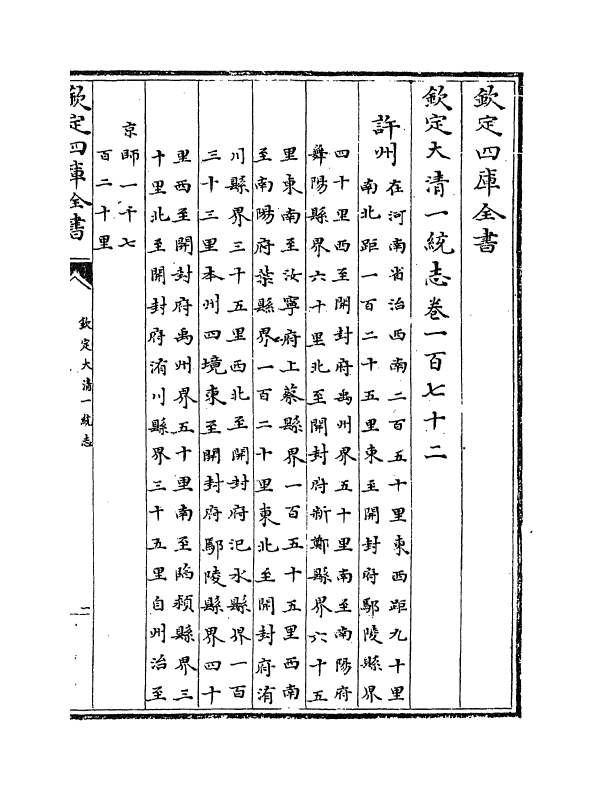 欽定四庫全書
欽定大清一統志卷一百七十二
許州
在河南省治西南二百五十里東西距九十里
南北距一百二十五里東至開封府鄢陵縣界
四十里西至開封府禹州界五十里南至南陽府
舞陽縣界六十里北至開封府新鄭縣界六十五
里東南至汝寧府上蔡縣界一百五十五里西南
至南陽府葉縣界一百二十里東北至開封府洧
川縣界三十五里西北至開封府汜水縣界一百
三十三里本州四境東至開封府鄢陵縣界四十
里西至開封府禹州界五十里南至臨潁縣界三
十里北至開封府洧川縣界三十五里自州治至
京師一千七
百二十里
欽定四庫全書
欽定大清一統志
一